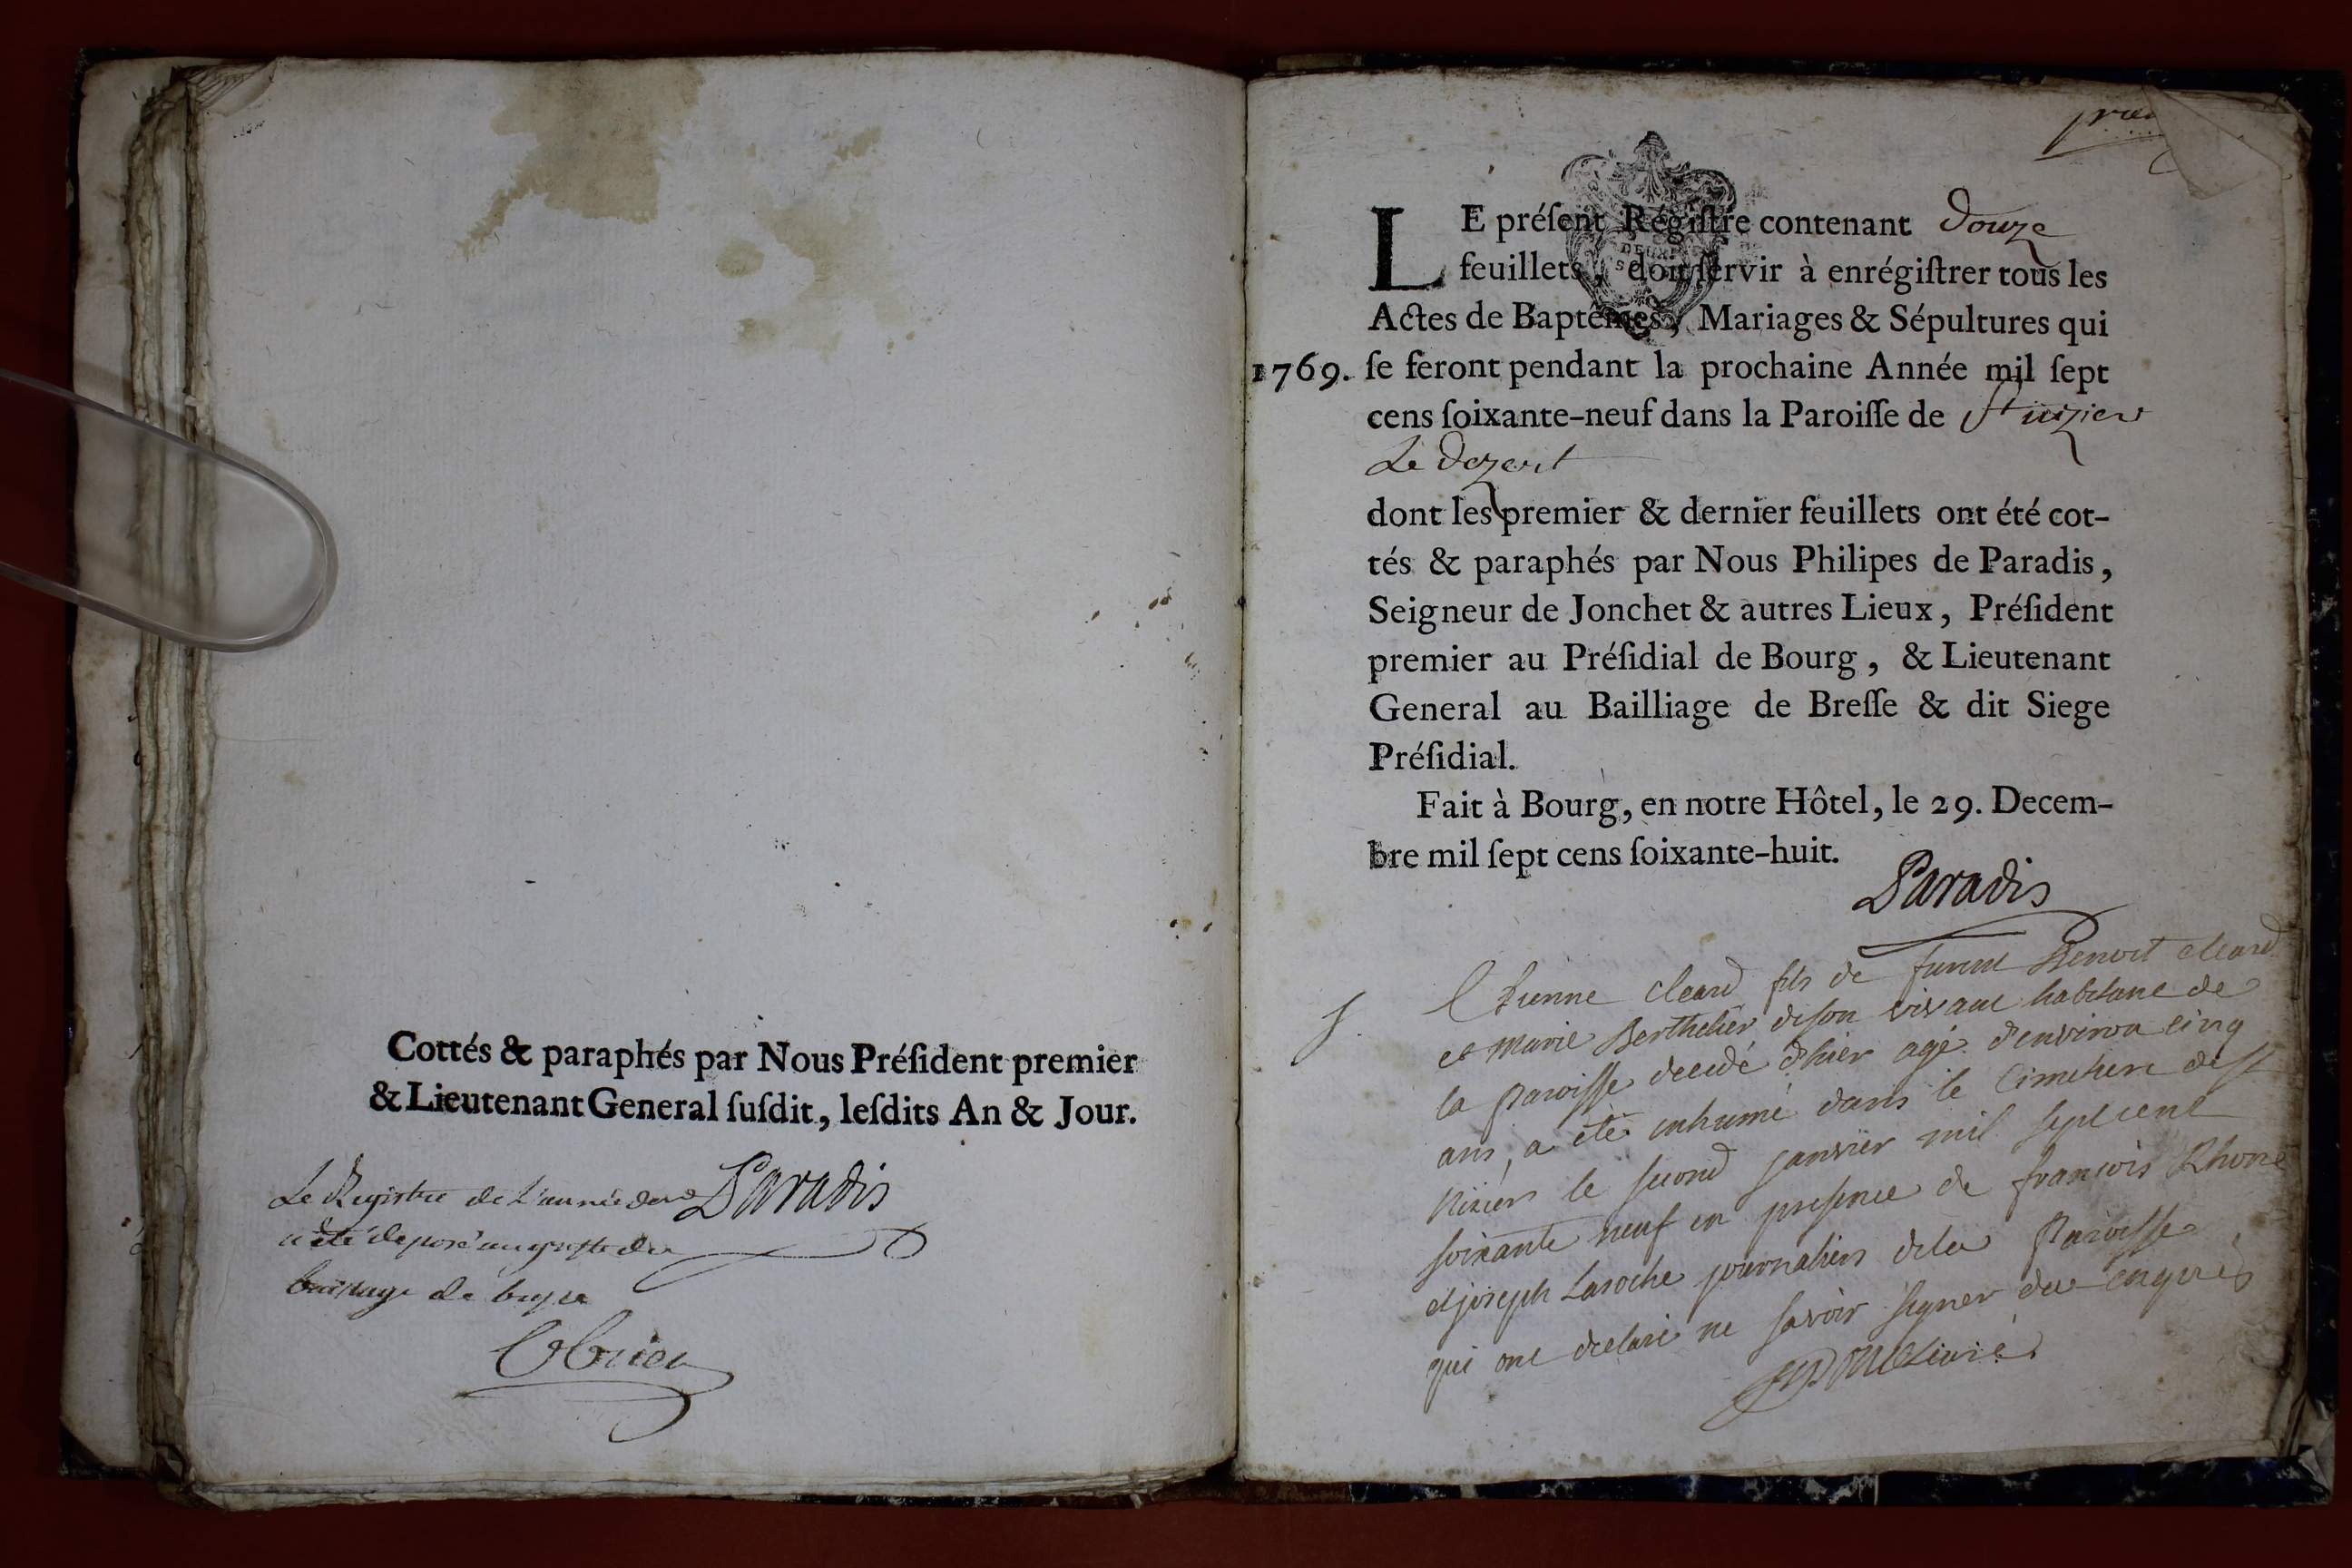 Cottés & paraphés par Nous Préſident premier
& Lieutenant General ſuſdit, leſdits An & Jour.
Paradis
Le Registre de L'année
a été deposé au greffe du
bailliage de
1769.
LE préſent Régiſtre contenant Douze
feuillets, doit ſervir à enrégiſtrer tous les
Actes de Baptêmes, Mariages & Sépultures qui
ſe feront pendant la prochaine Année mil ſept
cens ſoixante-neuf dans la Paroiſſe de St nizier
Le dezert
dont les premier & dernier feuillets ont été cot-
tés & paraphés par Nous Philipes de Paradis,
Seigneur de Jonchet & autres Lieux, Préſident
premier au Préſidial de Bourg, & Lieutenant
General au Bailliage de Breſſe & dit Siege
Préſidial.
Fait à Bourg, en notre Hôtel, le 29. Decem-
bre mil ſept cens ſoixante-huit.
Paradis
S.
Etienne cleard fils de Benoit cleard
et Marie Berthelier de son vivant habitant de
la Paroisse decedé d'hier agé d'environ cinq
ans, a été inhumé dans le Cimetiere de St
Nizier le second janvier mil sept cent
soixante neuf en presence de françois Rhone
et joseph Laroche journaliers de la Paroisse
qui ont declaré ne savoir signer de ce enquis